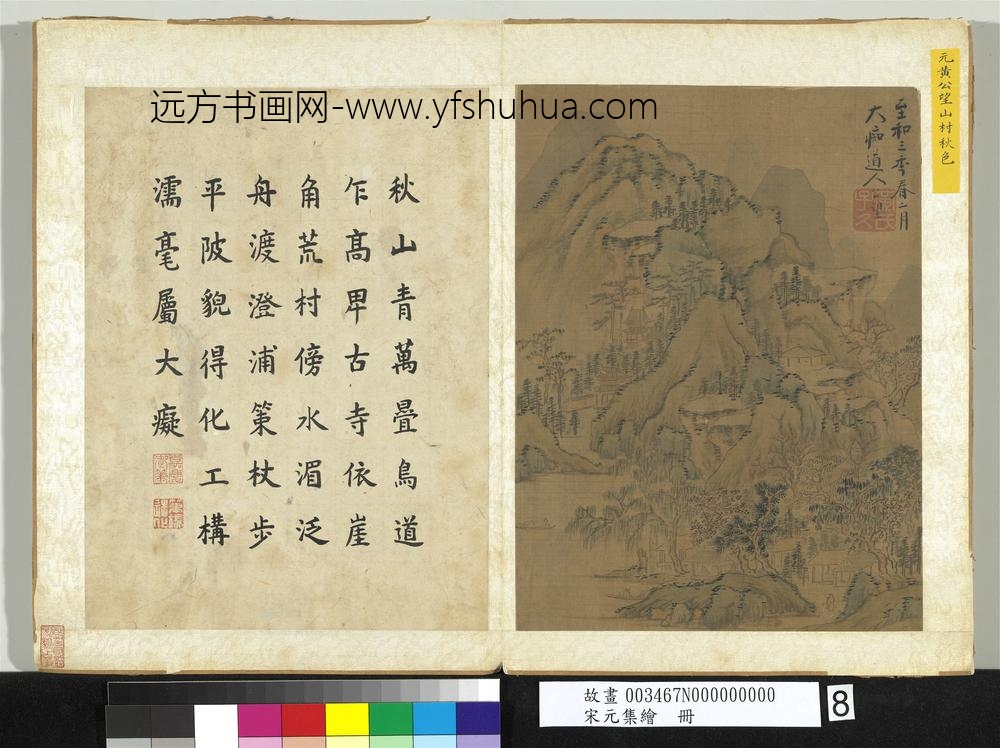 远方书画网-www.yfshuhua.com
元黃公望山村秋色
至和三年春二月
大癡道人
秋山青萬疊鳥道
乍高卑古寺依崖
角荒村傍水湄泛
舟渡澄浦策杖步
平陂貌得化工構
濡毫屬大癡
故畫 003467N000000000
宋元集繪 冊
8